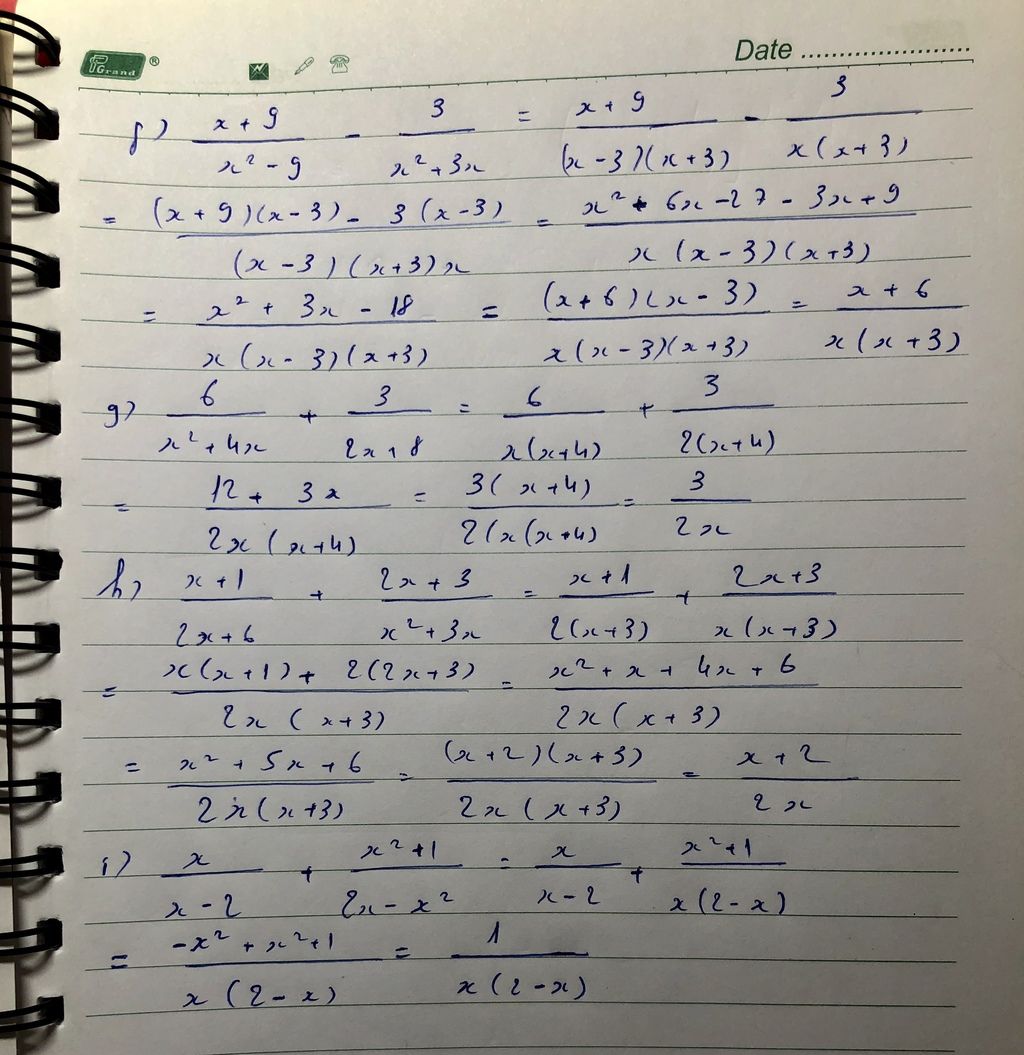 PGrand ® Date ......................
f) \frac{x+9}{x^2-9} - \frac{3}{x^2+3x} = \frac{x+9}{(x-3)(x+3)} - \frac{3}{x(x+3)}
= \frac{(x+9)(x-3) - 3(x-3)}{(x-3)(x+3)x} = \frac{x^2+6x-27-3x+9}{x(x-3)(x+3)}
= \frac{x^2+3x-18}{x(x-3)(x+3)} = \frac{(x+6)(x-3)}{x(x-3)(x+3)} = \frac{x+6}{x(x+3)}
g) \frac{6}{x^2+4x} + \frac{3}{2x+8} = \frac{6}{x(x+4)} + \frac{3}{2(x+4)}
= \frac{12+3x}{2x(x+4)} = \frac{3(x+4)}{2(x(x+4)} = \frac{3}{2x}
h) \frac{x+1}{2x+6} + \frac{2x+3}{x^2+3x} = \frac{x+1}{2(x+3)} + \frac{2x+3}{x(x+3)}
= \frac{x(x+1)+2(2x+3)}{2x(x+3)} = \frac{x^2+x+4x+6}{2x(x+3)}
= \frac{x^2+5x+6}{2x(x+3)} = \frac{(x+2)(x+3)}{2x(x+3)} = \frac{x+2}{2x}
i) \frac{x}{x-2} + \frac{x^2+1}{2x-x^2} = \frac{x}{x-2} + \frac{x^2+1}{x(2-x)}
= \frac{-x^2+x^2+1}{x(2-x)} = \frac{1}{x(2-x)}